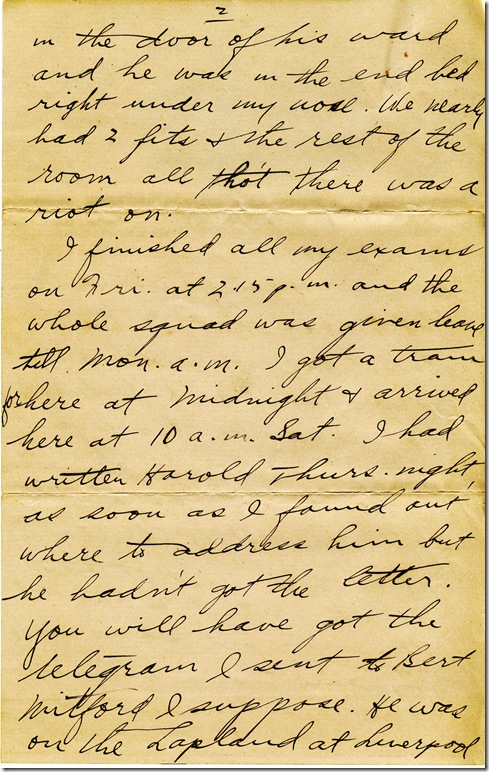 2
in the door of his ward
and he was in the end bed
right under my nose. We nearly
had 2 fits & the rest of the
room all tho't there was a
riot on.
I finished all my exams
on Fri. at 2.15 p.m. and the
whole squad was given leave
till Mon. a.m. I got a train
for here at midnight & arrived
here at 10 a.m. Sat. I had
written Harold Thurs. night,
as soon as I found out
where to address him but
he hadn't got the letter.
You will have got the
telegram I sent to Bert
Mitford I suppose. He was
on the Lapland at Liverpool